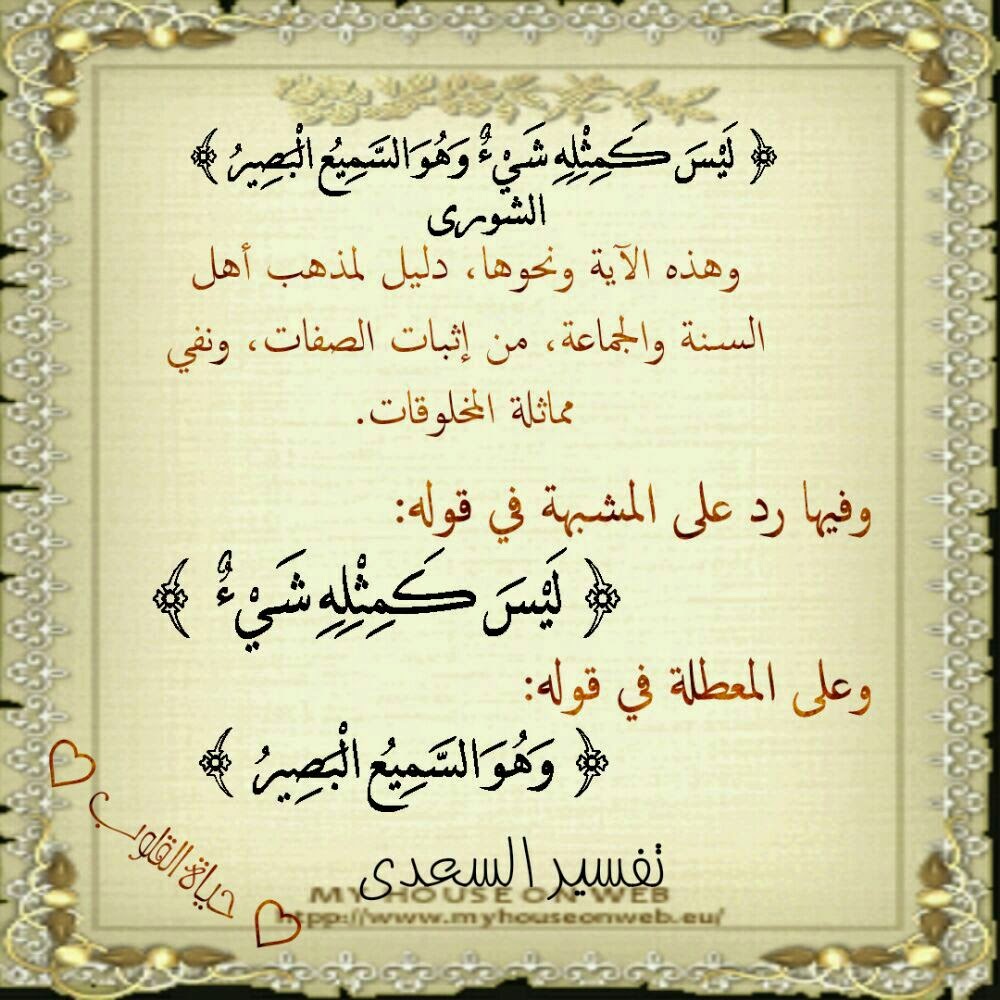 ﴿ لَيْسَ كَمِثْلِهِ شَيْءٌ وَهُوَ السَّمِيعُ الْبَصِيرُ ﴾
الشورى
وهذه الآية ونحوها، دليل لمذهب أهل
السنة والجماعة، من إثبات الصفات، ونفي
مماثلة المخلوقات.
وفيها رد على المشبهة في قوله:
﴿ لَيْسَ كَمِثْلِهِ شَيْءٌ ﴾
وعلى المعطلة في قوله:
﴿ وَهُوَ السَّمِيعُ الْبَصِيرُ ﴾
حياة القلوب
تفسير السعدى
MY HOUSE ON WEB
htpp://www.myhouseonweb.eu/